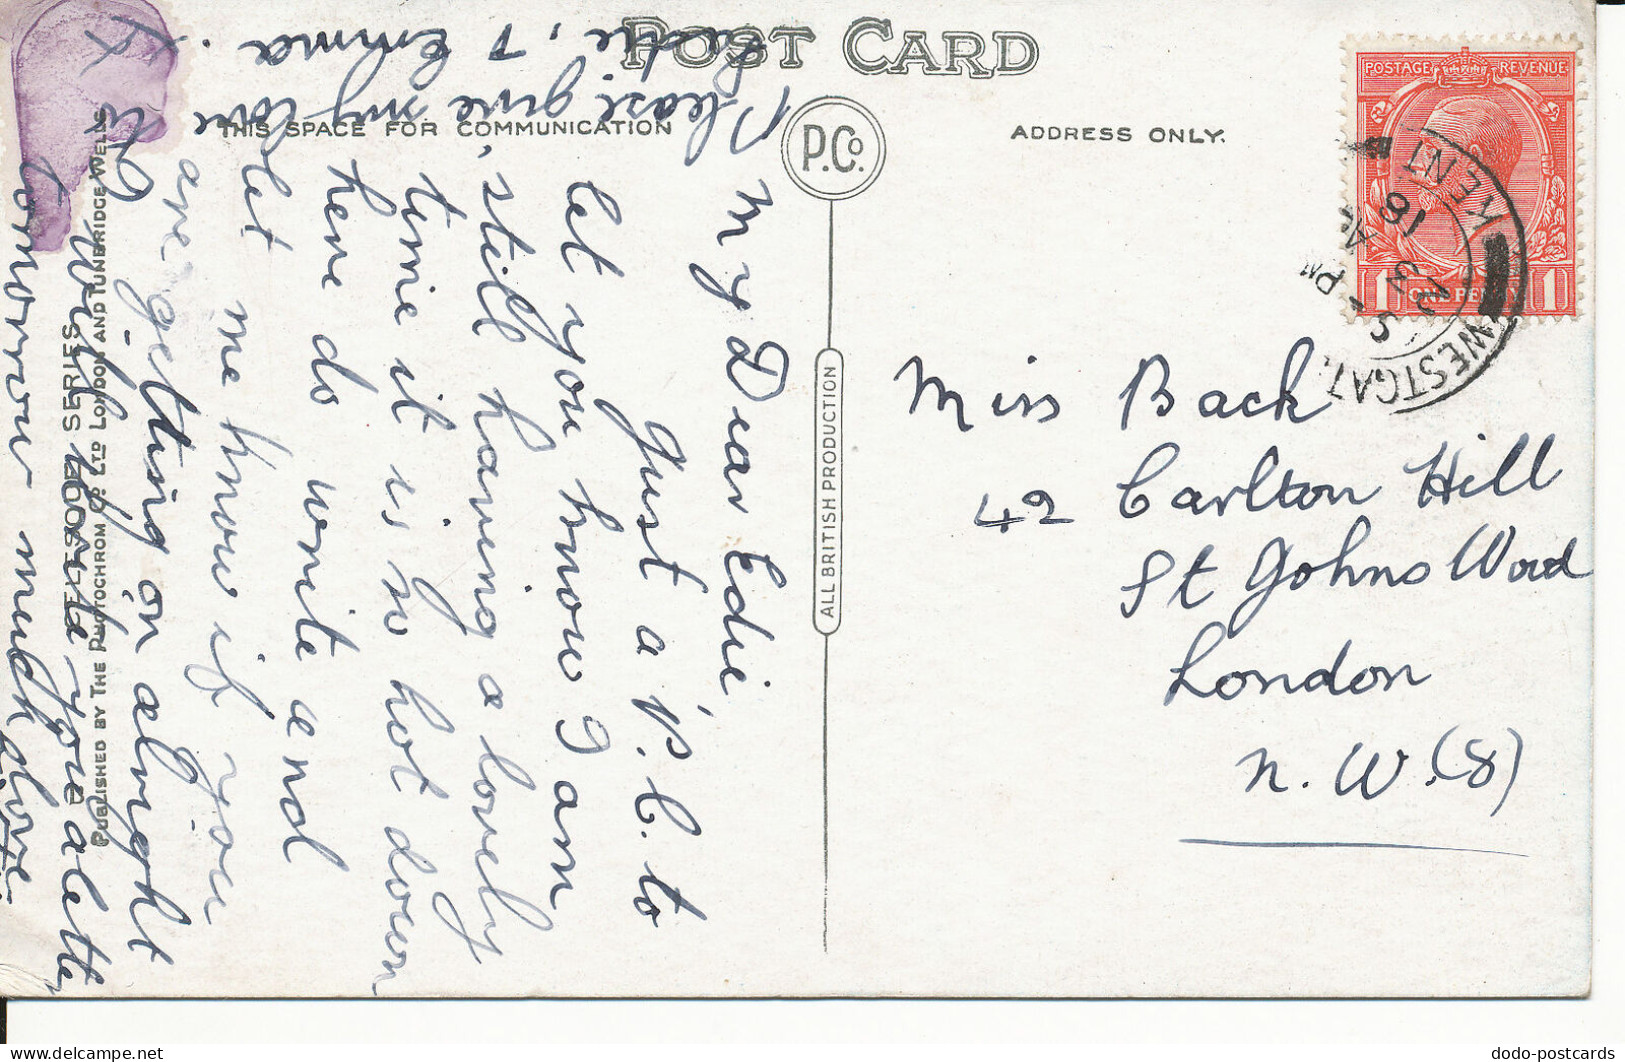 POST CARD
THIS SPACE FOR COMMUNICATION
ADDRESS ONLY.
P.Co.
ALL BRITISH PRODUCTION
POSTAGE REVENUE
1 ONE PENNY 1
WESTGAT
KENT
5 - PM
18
3
Miss Back
42 Carlton Hill
St Johns Wood
London
N. W. (8)
My Dear Edie,
Just a P.C. to
let you know I am
still having a lovely
time, it is so hot down
here do write and
let me know if you
are getting on alright
I will write you a letter
tomorrow much love
Please give my love
to
& Emma.
SERIES
PUBLISHED BY THE PHOTOCHROM CO. LTD LONDON AND TUNBRIDGE WELLS
dodo-postcards